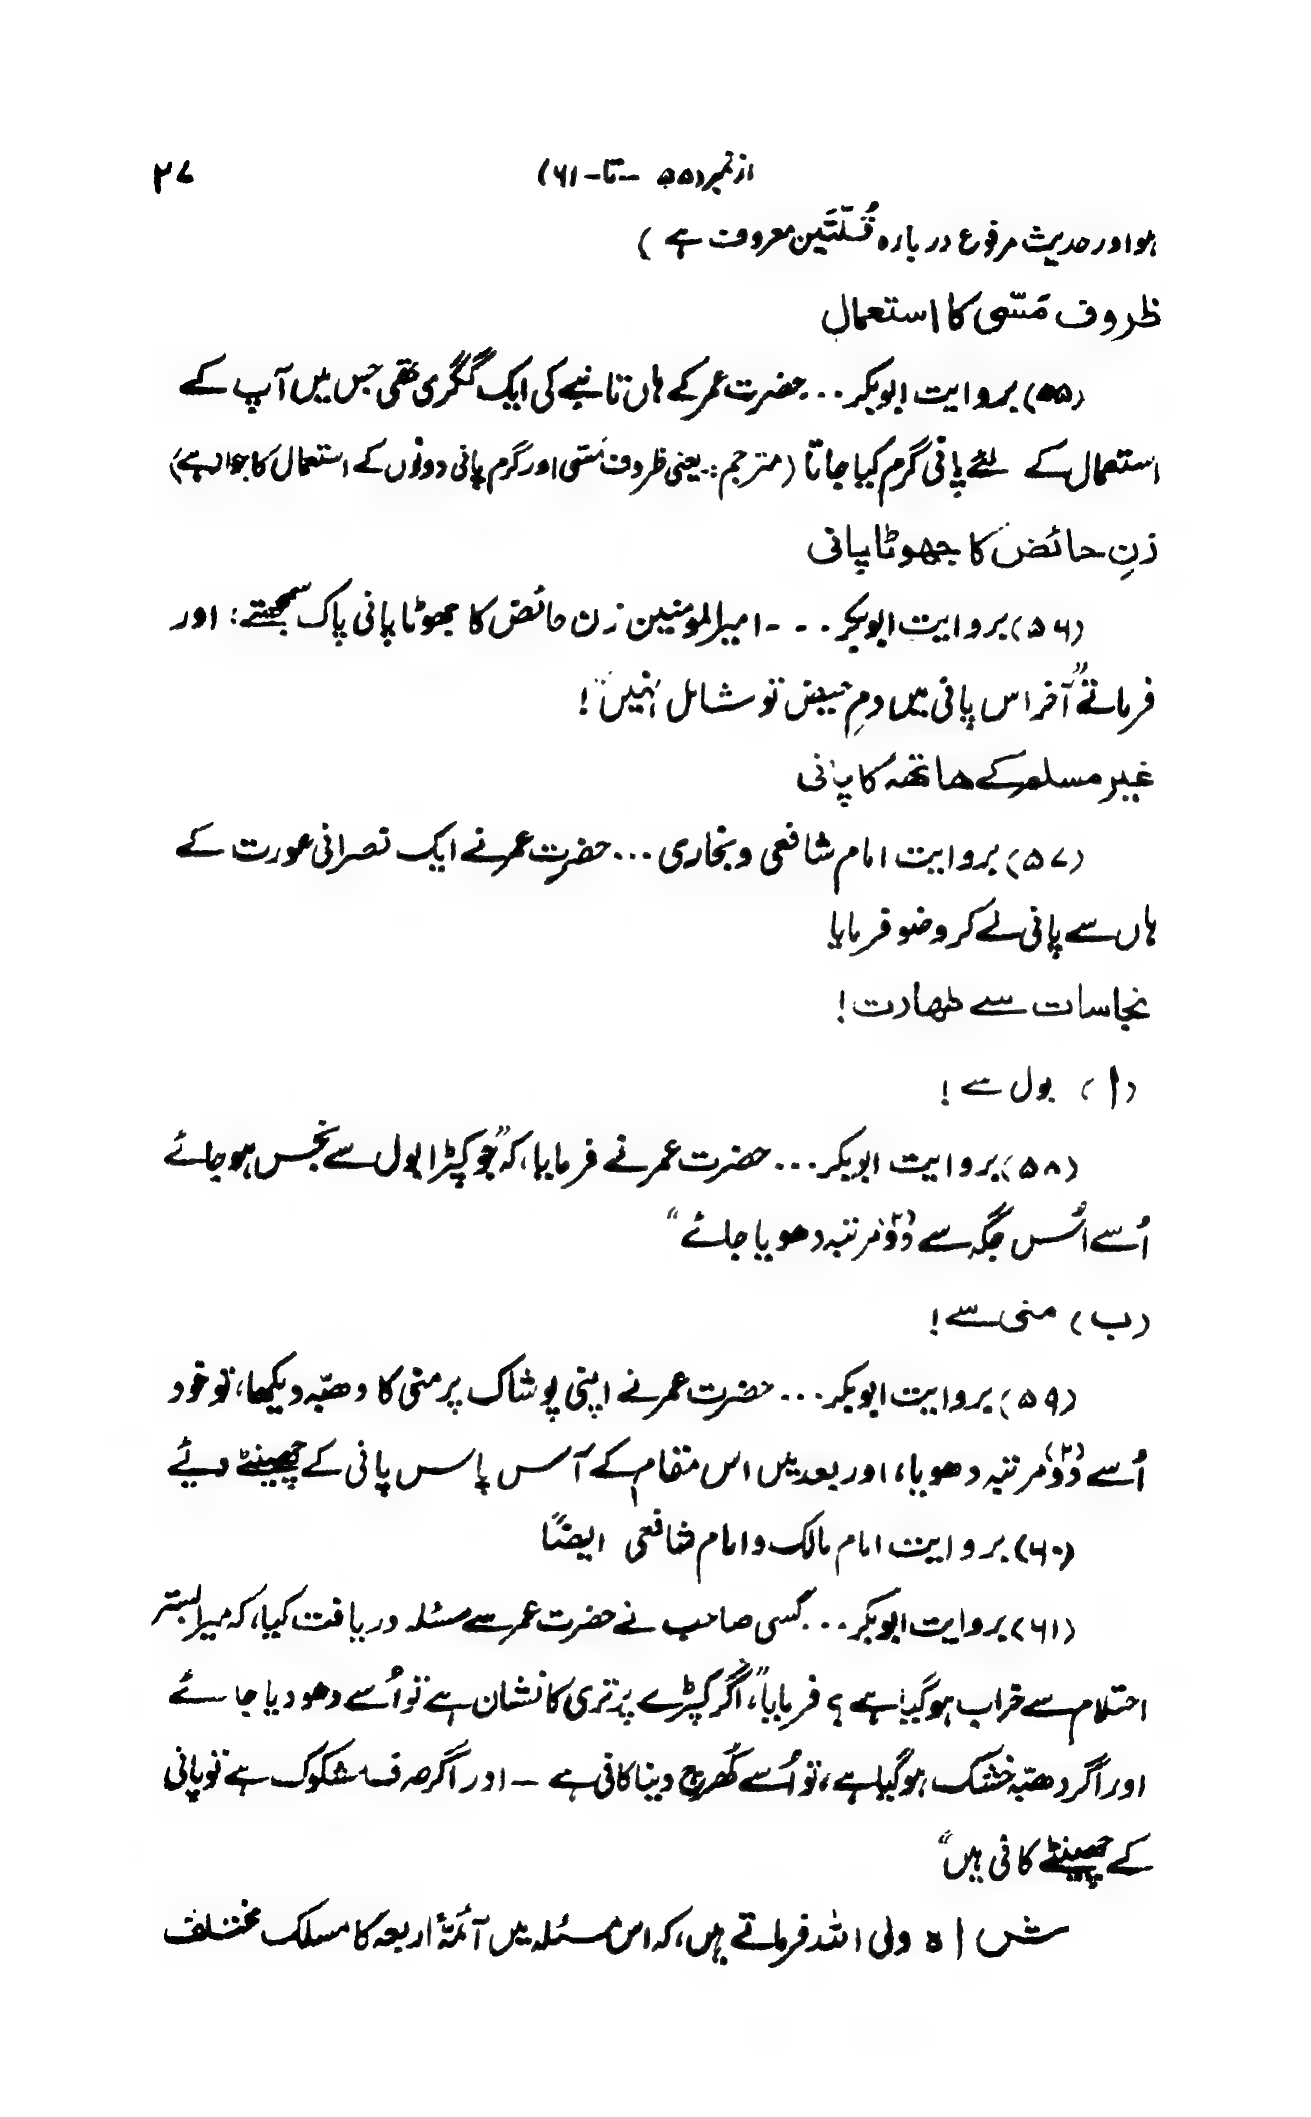 از نمبر (۵۵ -تا- ۶۱) ۲۷
ہو اور حدیث مرفوع دربارہ قُلّتَین معروف ہے )
ظروف مَسّی کا استعمال
(۵۵) بروایت ابوبکر... حضرت عمر کے ہاں تانبے کی ایک گگری تھی جس میں آپ کے
استعمال کے لئے پانی گرم کیا جاتا (مترجم:۔ یعنی ظروف مَسّی اور گرم پانی دونوں کے استعمال کا جواز ہے)
زنِ حائض کا جھوٹا پانی
(۵۶) بروایت ابوبکر... امیرالمومنین زن حائض کا جھوٹا پانی پاک سمجھتے: اور
فرماتے "آخر اس پانی میں دمِ حیض تو شامل نہیں"!
غیر مسلم کے ہاتھ کا پانی
(۵۷) بروایت امام شافعی و بخاری... حضرت عمر نے ایک نصرانی عورت کے
ہاں سے پانی لے کر وضو فرمایا
نجاسات سے طہارت!
(ا) بول سے!
(۵۸) بروایت ابوبکر... حضرت عمر نے فرمایا، کہ "جو کپڑا بول سے نجس ہو جائے
اُسے اُس جگہ سے دُو (۲) مرتبہ دھویا جائے"
(ب) منی سے!
(۵۹) بروایت ابوبکر... حضرت عمر نے اپنی پوشاک پر منی کا دھبّہ دیکھا، تو خود
اُسے دُو (۲) مرتبہ دھویا، اور بعد میں اس مقام کے آس پاس پانی کے چھینٹے دیئے
(۶۰) بروایت امام مالک و امام شافعی ایضًا
(۶۱) بروایت ابوبکر... کسی صاحب نے حضرت عمر سے مسئلہ دریافت کیا، کہ میرا بستر
احتلام سے خراب ہو گیا ہے؟ فرمایا، "اگر کپڑے پر تری کا نشان ہے تو اُسے دھو دیا جائے
اور اگر دھبّہ خشک ہو گیا ہے، تو اُسے کُھرچ دینا کافی ہے — اور اگر صرف مشکوک ہے تو پانی
کے چھینٹے کافی ہیں"
شاہ ولی اللہ فرماتے ہیں، کہ اس مسئلہ میں آئمۂ اربعہ کا مسلک مختلف